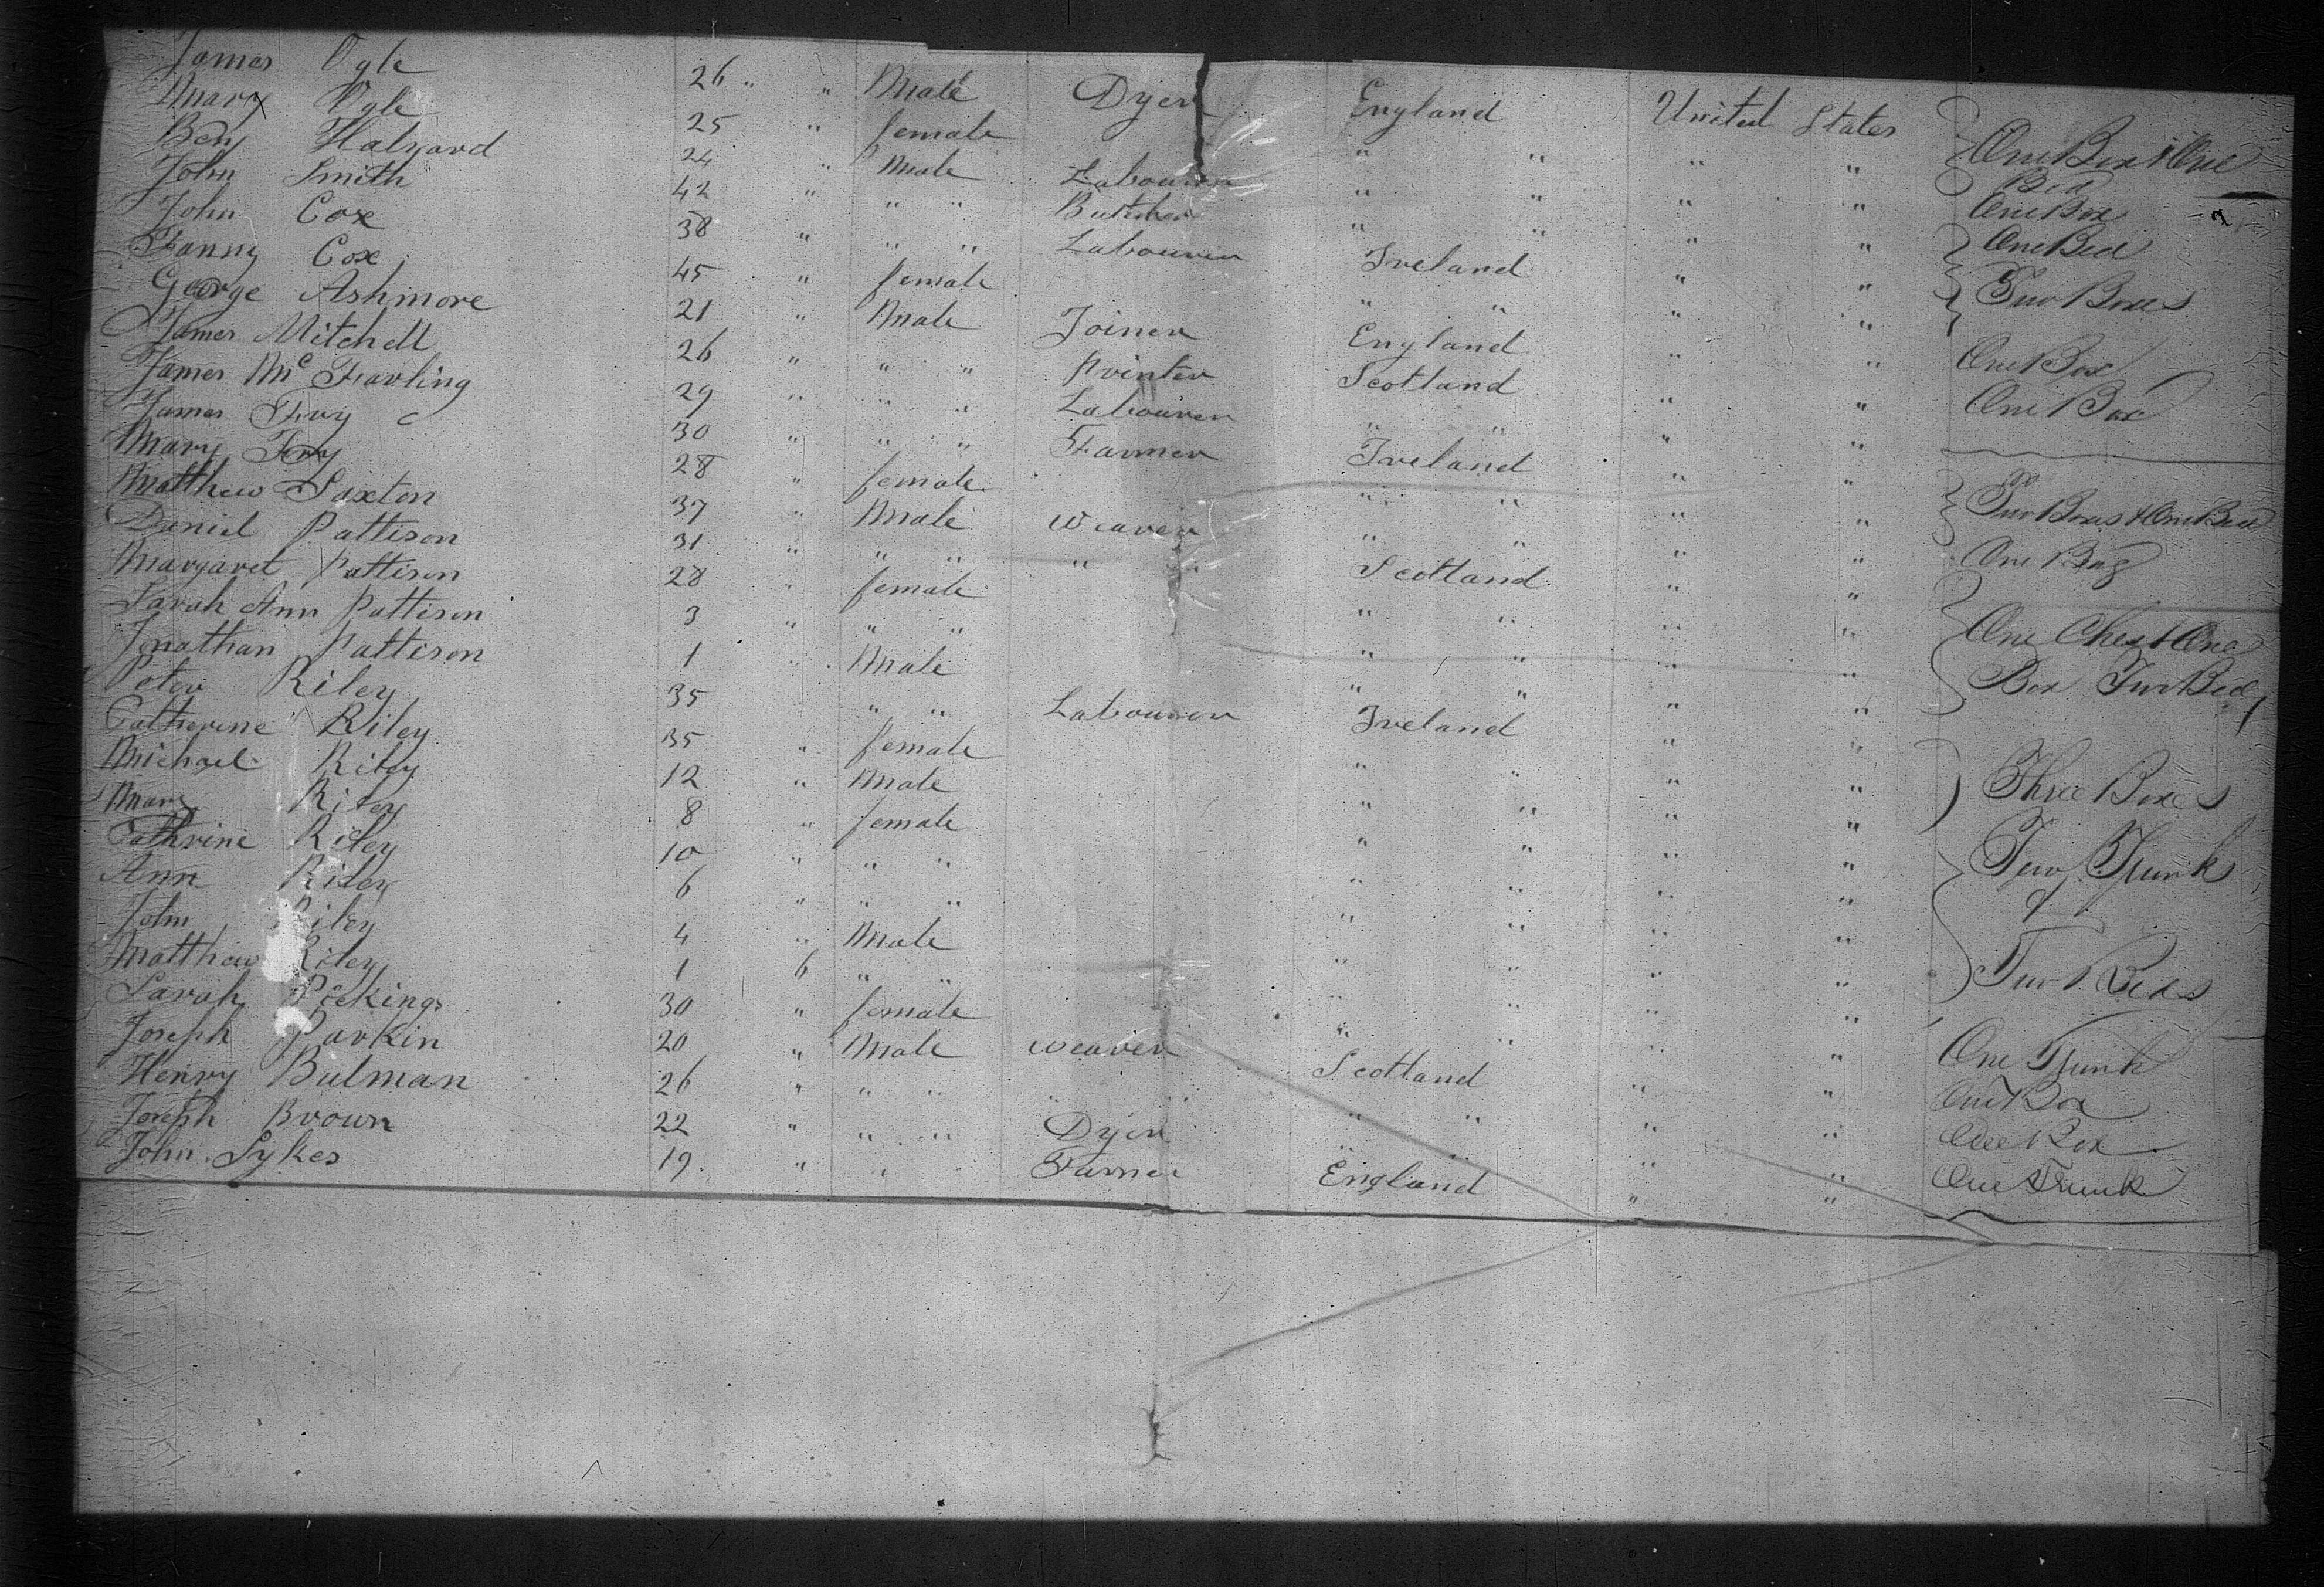 James Ogle 26 " " Male Dyer England United States One Box & One
Mary Ogle 25 " female " " " " Bed
Beny Halyard 24 " Male Labourer " " " " One Box
John Smith 42 " " " Butcher " " " " One Bed
John Cox 38 " " " Labourer Ireland " " Two Boxes
Fanny Cox 45 " female " " " "
George Ashmore 21 " Male Joiner England " " One Box
James Mitchell 26 " " " Printer Scotland " " One Box
James McFarling 29 " " " Labourer " " " "
James Fry 30 " " " Farmer Ireland " "
Mary Fry 28 " female " " " " Two Boxes & One Bed
Matthew Saxton 37 " Male Weaver " " " " One Bag
Daniel Pattison 31 " " " " " Scotland " "
Margaret Pattison 28 " female " " " " One Chest & One
Sarah Ann Pattison 3 " " " " " " " Box Two Beds
Jonathan Pattison 1 " Male " " " "
Peter Riley 35 " " Labourer Ireland " "
Catherine Riley 35 " female " " " " Three Boxes
Michael Riley 12 " Male " " " "
Mary Riley 8 " female " " " " Two Trunks
Cathrine Riley 10 " " " " " " " &
Ann Riley 6 " " " " " " "
John Riley 4 " Male " " " " Two Beds
Matthew Riley 1 6 " " " " " "
Sarah 30 " female " " " " One Trunk
Joseph Parkin 20 " Male Weaver Scotland " " One Box
Henry Bulman 26 " " " " " " " " " One Box
Joseph Brown 22 " " " Dyer " " " " One Trunk
John Sykes 19 " " Farmer England " "